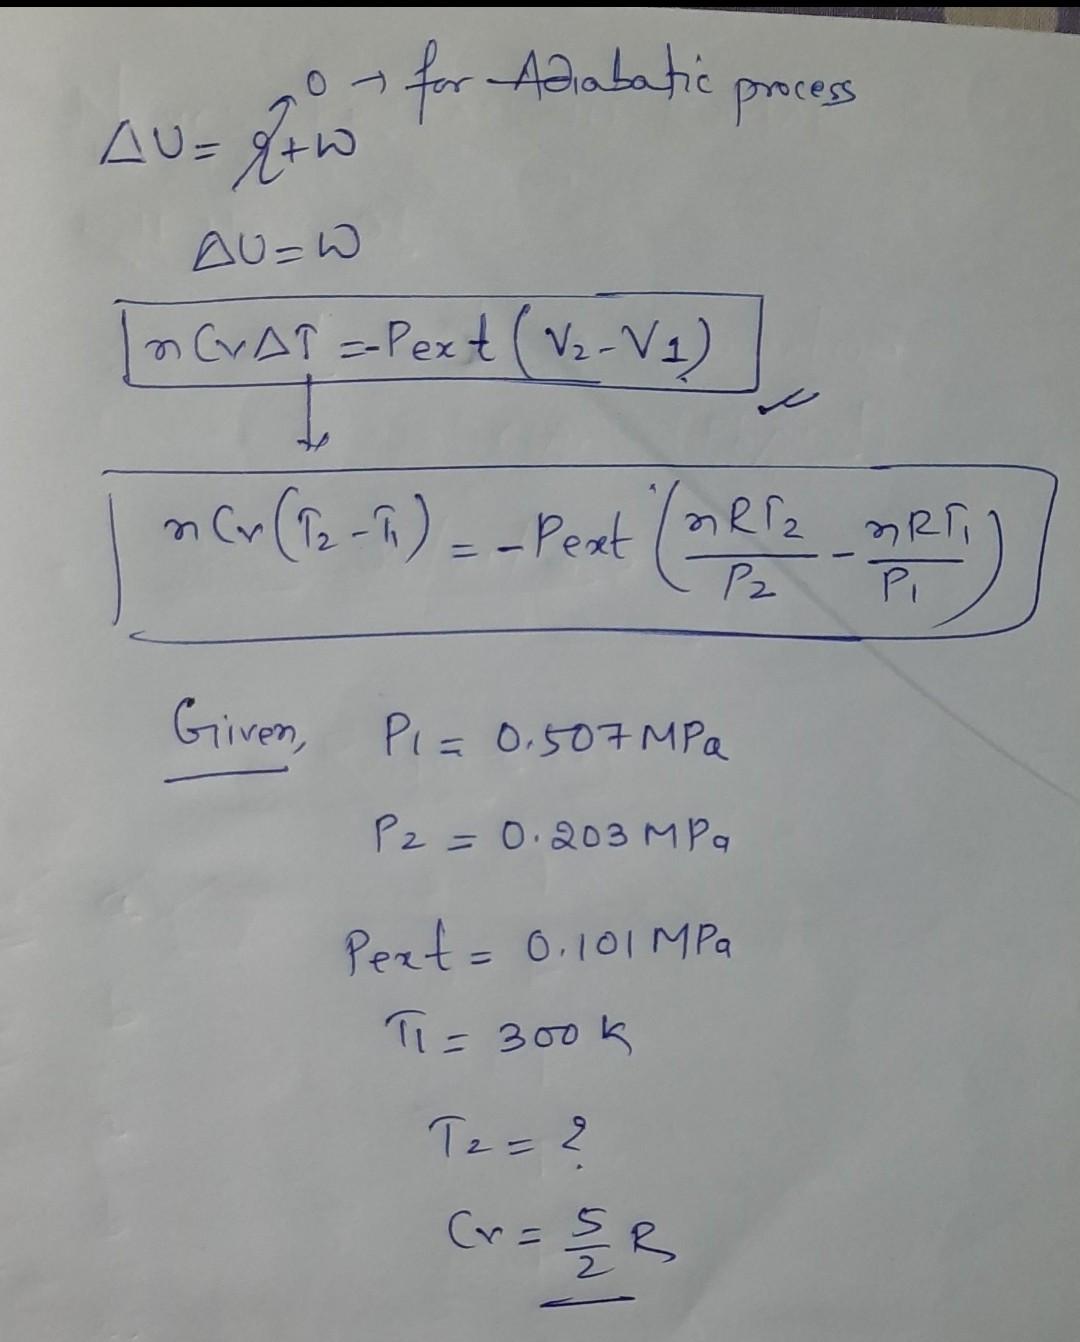 0 → for Adiabatic process
ΔU = q + W
ΔU = W
nCvΔT = -Pext (V2 - V1)
nCv(T2 - T1) = -Pext (nRT2/P2 - nRT1/P1)
Given, P1 = 0.507 MPa
P2 = 0.203 MPa
Pext = 0.101 MPa
T1 = 300 K
T2 = ?
Cv = 5/2 R